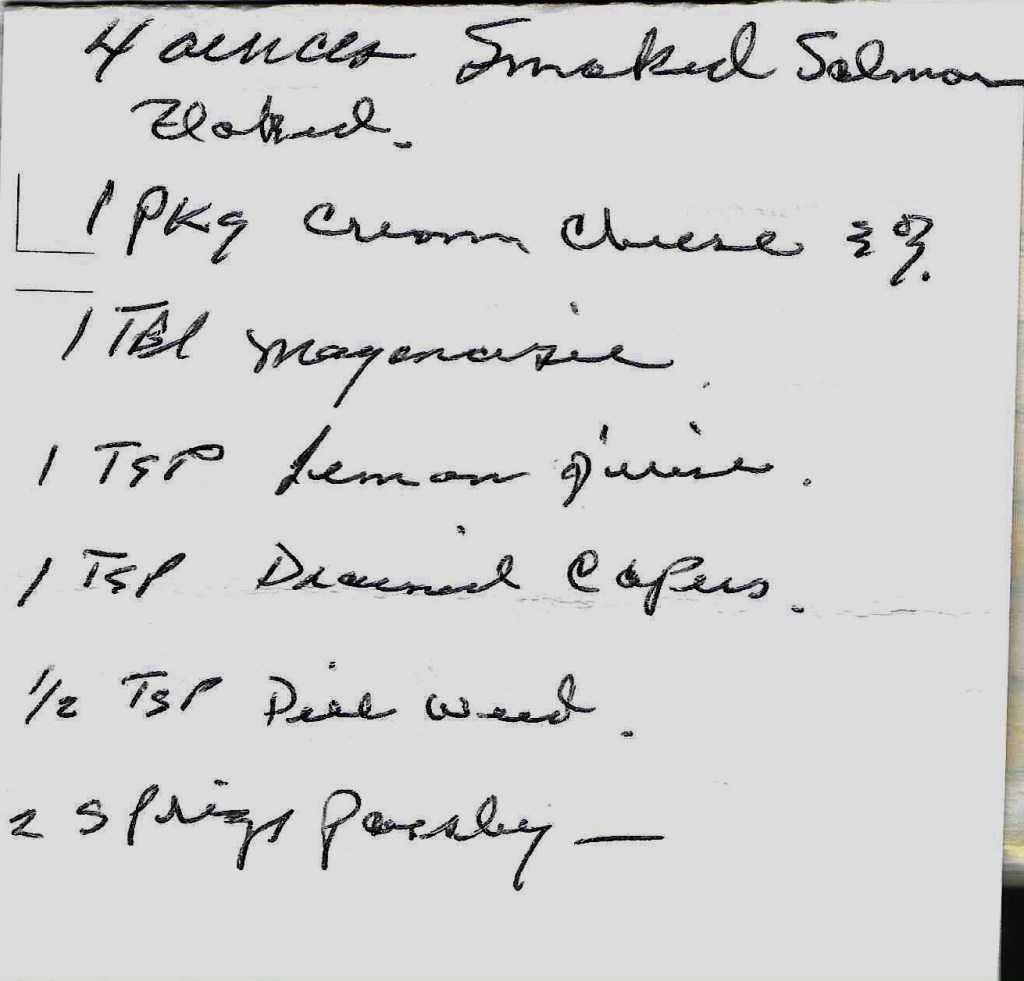 4 ounces Smoked Salmon
Flaked.
1 PKg Cream Cheese
1 TBl Mayonaise
1 TSP Lemon Juice.
1 TSP Drained Capers.
1/2 TSP Dill Weed.
2 Sprigs Parsley —